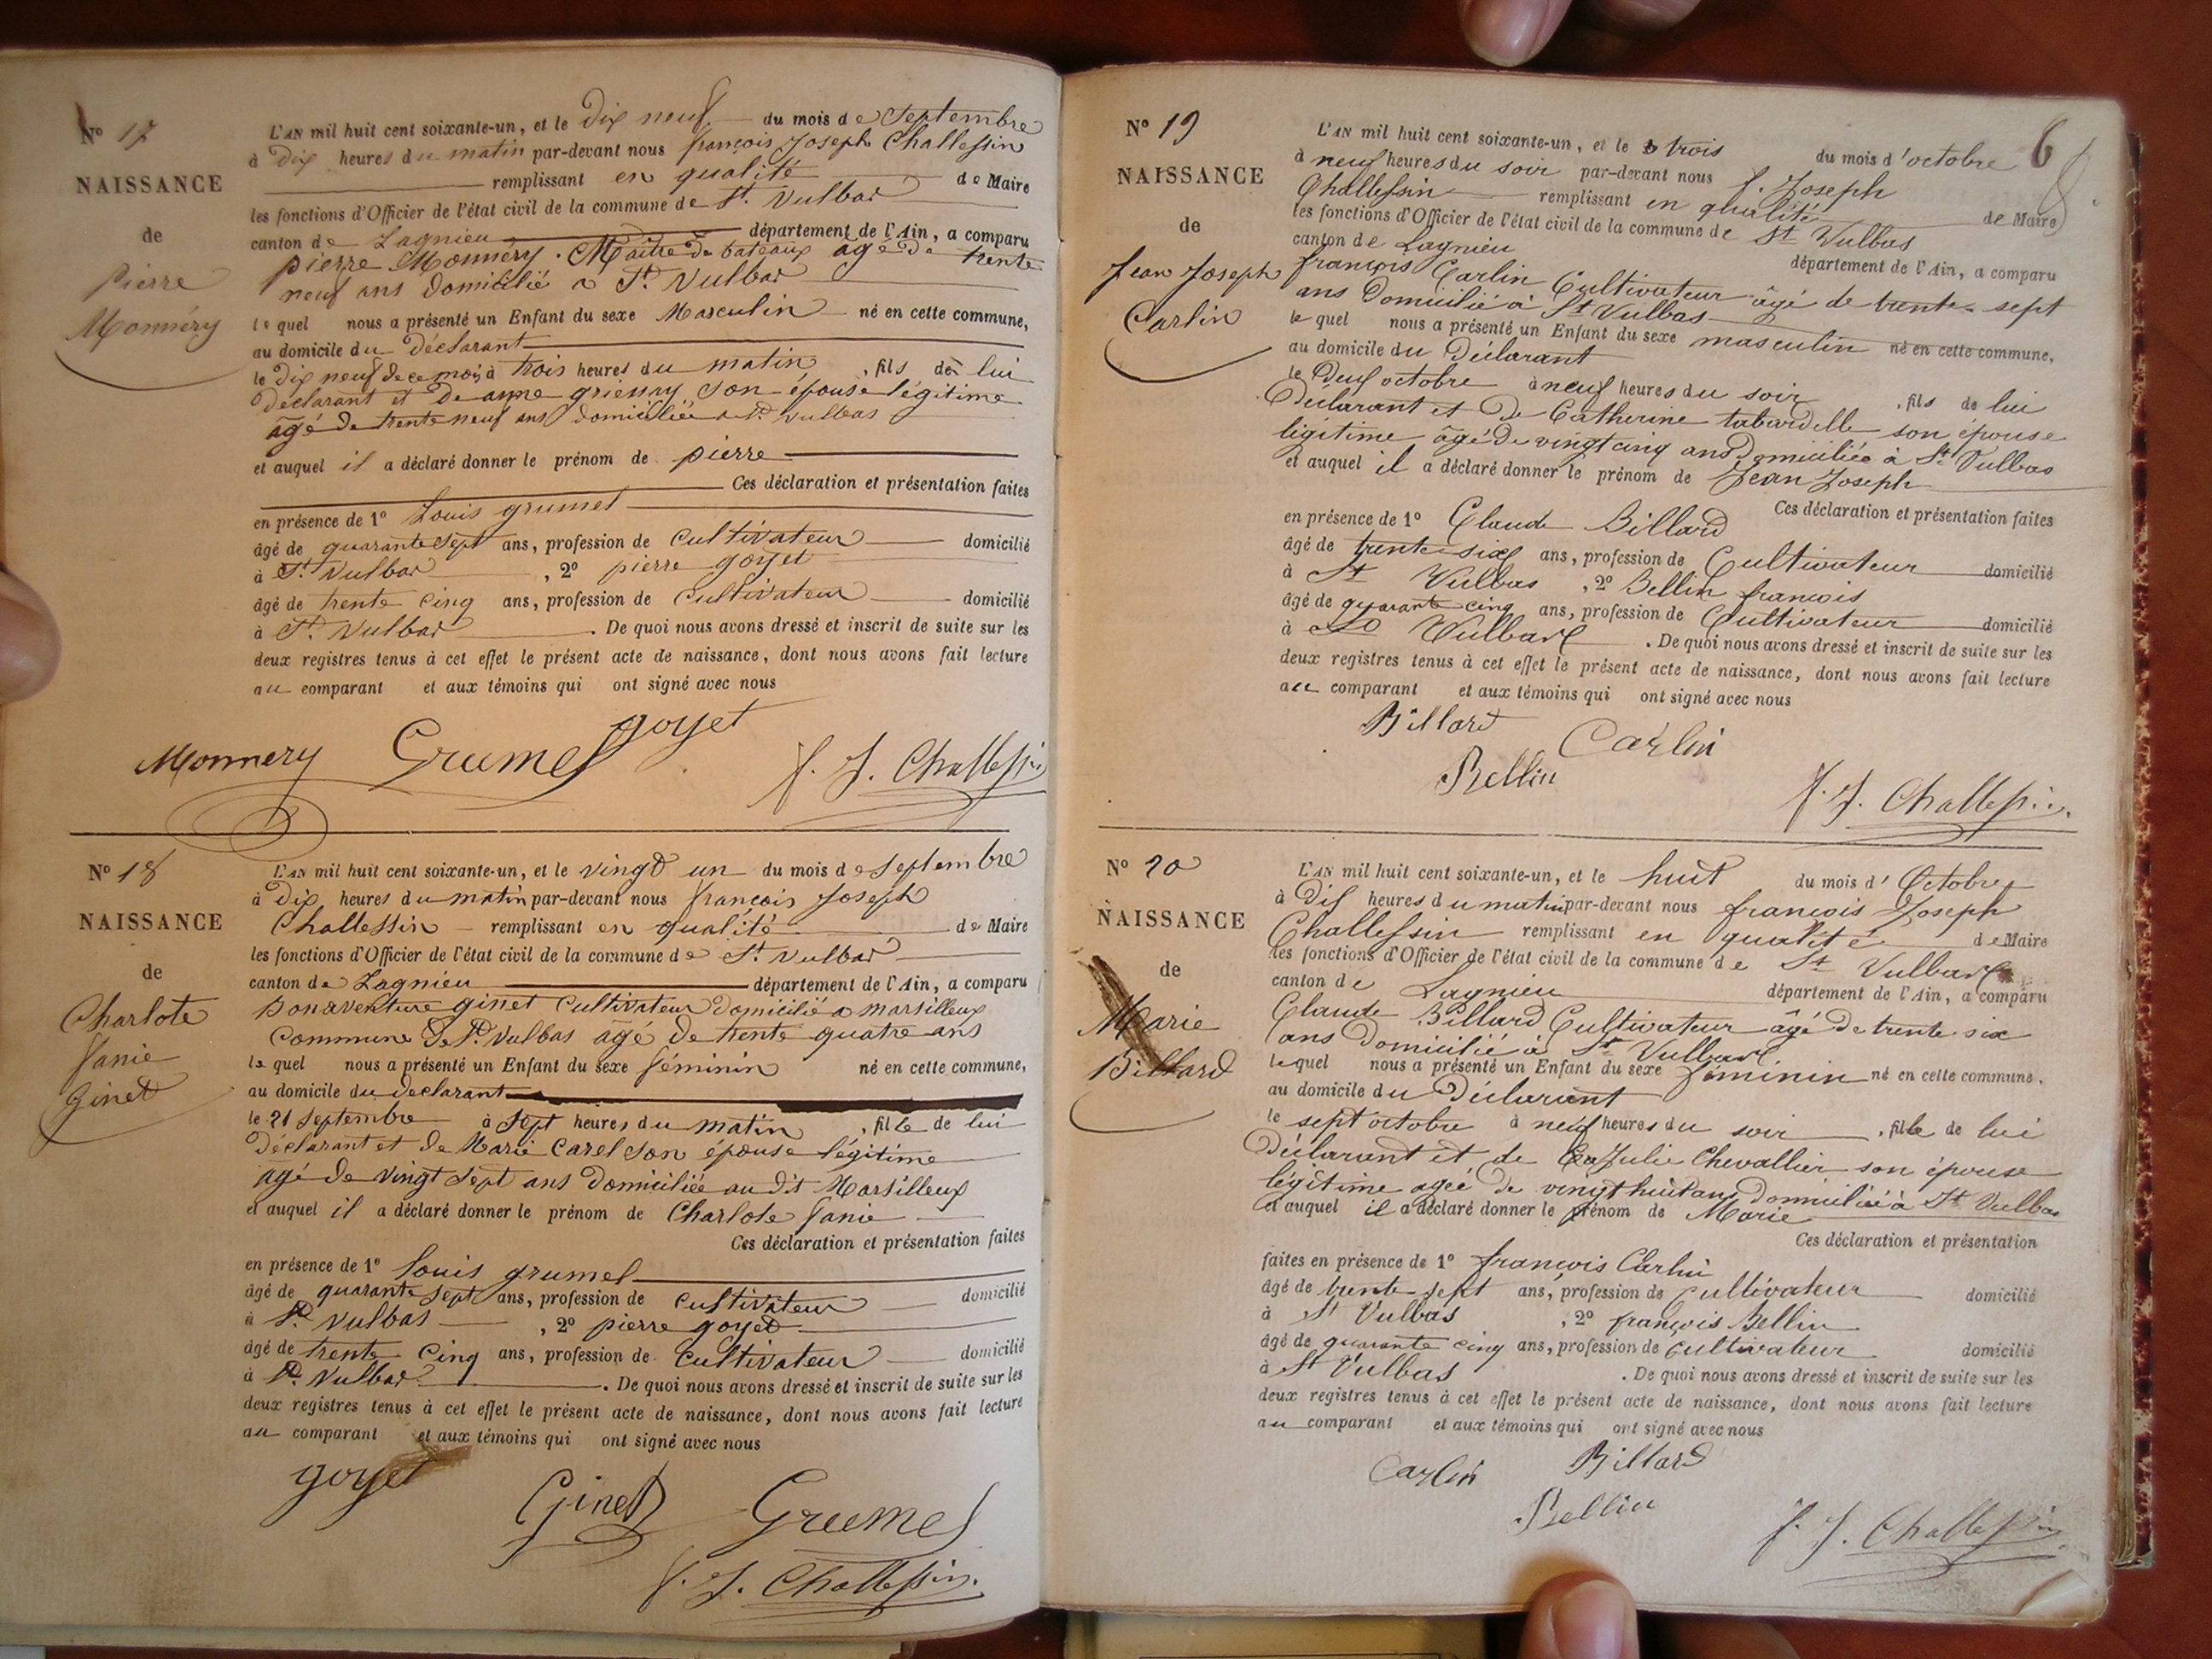 N° 17
NAISSANCE
de
Pierre
Monnéry
L'AN mil huit cent soixante-un, et le Dix neuf du mois de Septembre
à Dix heures du matin par-devant nous françois Joseph Challessin
remplissant en qualité de Maire
les fonctions d'Officier de l'état civil de la commune de St. Vulbas
canton de Lagnieu département de l'Ain, a comparu
pierre Monnéry. Maître de bateaux agé de trente
neuf ans domicilié a St. Vulbas
le quel nous a présenté un Enfant du sexe Masculin né en cette commune,
au domicile du Déclarant
le Dix neuf de ce mois à trois heures du matin, fils de lui
déclarant et De anne son épouse légitime
âgé de trente neuf ans domiciliée a St. Vulbas
et auquel il a déclaré donner le prénom de pierre
Ces déclaration et présentation faites
en présence de 1° Louis grumel
âgé de quarante sept ans, profession de cultivateur domicilié
à St. Vulbas, 2° pierre goyet
âgé de trente cinq ans, profession de cultivateur domicilié
à St. Vulbas. De quoi nous avons dressé et inscrit de suite sur les
deux registres tenus à cet effet le présent acte de naissance, dont nous avons fait lecture
au comparant et aux témoins qui ont signé avec nous
Monnery Grumel goyet
f. J. Challessin
N° 18
NAISSANCE
de
Charlote
fanie
Ginet
L'AN mil huit cent soixante-un, et le vingt un du mois de Septembre
à Dix heures du matin par-devant nous françois Joseph
Challessin remplissant en qualité de Maire
les fonctions d'Officier de l'état civil de la commune de St. Vulbas
canton de Lagnieu département de l'Ain, a comparu
bonaventure ginet cultivateur domicilié a marsilleux
commune de St. Vulbas âgé de trente quatre ans
le quel nous a présenté un Enfant du sexe féminin né en cette commune,
au domicile du declarant
le 21 septembre à sept heures du matin, fille de lui
déclarant et de Marie Carel son épouse légitime
agé de vingt sept ans domiciliée au dit Marsilleux
et auquel il a déclaré donner le prénom de Charlote fanie
Ces déclaration et présentation faites
en présence de 1° Louis grumel
âgé de quarante sept ans, profession de cultivateur domicilié
à St. Vulbas, 2° pierre goyet
âgé de trente cinq ans, profession de cultivateur domicilié
à St. Vulbas. De quoi nous avons dressé et inscrit de suite sur les
deux registres tenus à cet effet le présent acte de naissance, dont nous avons fait lecture
au comparant et aux témoins qui ont signé avec nous
goyet Ginet Grumel
f. J. Challessin.
6
N° 19
NAISSANCE
de
Jean Joseph
Carlin
L'AN mil huit cent soixante-un, et le trois du mois d'octobre
à neuf heures du soir par-devant nous f. Joseph
Challessin remplissant en qualité de Maire
les fonctions d'Officier de l'état civil de la commune de St Vulbas
canton de Lagnieu département de l'Ain, a comparu
françois Carlin Cultivateur âgé de trente sept
ans Domicilié à St Vulbas
le quel nous a présenté un Enfant du sexe masculin né en cette commune,
au domicile du Déclarant
le Deux octobre à neuf heures du soir, fils de lui
Déclarant et De Catherine tabardelle son épouse
légitime âgé de vingt cinq ans Domiciliée à St Vulbas
et auquel il a déclaré donner le prénom de Jean Joseph
Ces déclaration et présentation faites
en présence de 1° Claude Billard
âgé de trente six ans, profession de Cultivateur domicilié
à St Vulbas, 2° Bellin françois
âgé de quarante cinq ans, profession de Cultivateur domicilié
à St Vulbas. De quoi nous avons dressé et inscrit de suite sur les
deux registres tenus à cet effet le présent acte de naissance, dont nous avons fait lecture
au comparant et aux témoins qui ont signé avec nous
Billard Carlin
Bellin
f. J. Challessin.
N° 20
NAISSANCE
de
Marie
Billard
L'AN mil huit cent soixante-un, et le huit du mois d'Octobre
à Dix heures du matin par-devant nous françois Joseph
Challessin remplissant en qualité de Maire
les fonctions d'Officier de l'état civil de la commune de St Vulbas
canton de Lagnieu département de l'Ain, a comparu
Claude Billard Cultivateur âgé de trente six
ans Domicilié à St Vulbas
le quel nous a présenté un Enfant du sexe féminin né en cette commune,
au domicile du Déclarant
le sept octobre à neuf heures du soir, fille de lui
Déclarant et de Julie Chevallier son épouse
légitime agée de vingt huit ans domiciliée à St Vulbas
et auquel il a déclaré donner le prénom de Marie
Ces déclaration et présentation
faites en présence de 1° françois Carlin
âgé de trente sept ans, profession de cultivateur domicilié
à St Vulbas, 2° françois Bellin
âgé de quarante cinq ans, profession de cultivateur domicilié
à St Vulbas. De quoi nous avons dressé et inscrit de suite sur les
deux registres tenus à cet effet le présent acte de naissance, dont nous avons fait lecture
au comparant et aux témoins qui ont signé avec nous
Carlin Billard
Bellin
f. J. Challessin